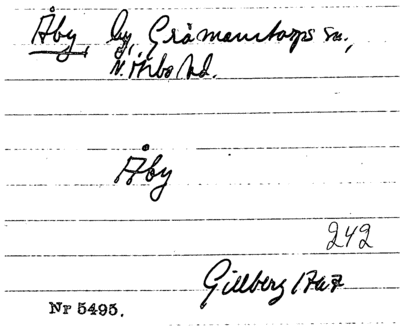 Åby, by, Gråmanstorps sn.,
N. Åsbo hd.
Åby
242
Gillberg 1767
Nr 5495.